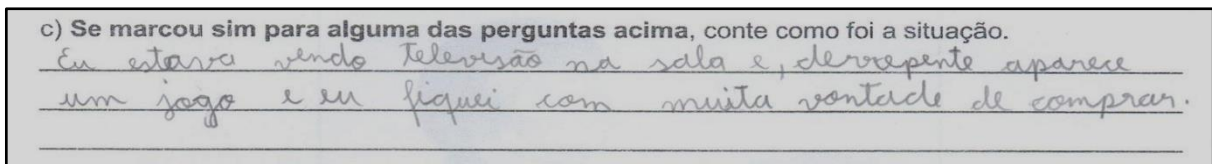 c) Se marcou sim para alguma das perguntas acima, conte como foi a situação.
Eu estava vendo televisão na sala e, derrepente aparece
um jogo e eu fiquei com muita vontade de comprar.